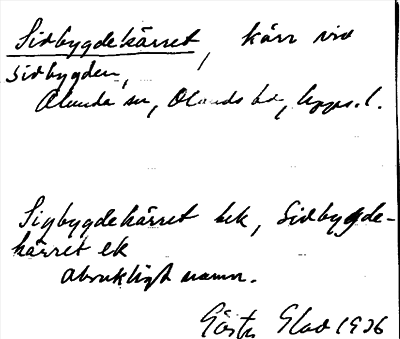 Sidbygdekärret, kärr vid
sidbygden,
Alunda sn, Olands hd, Upps. l.
Sigbygdekärret hk, Sidbygde-
kärret ek
obrukligt namn.
Gösta Glad 1926